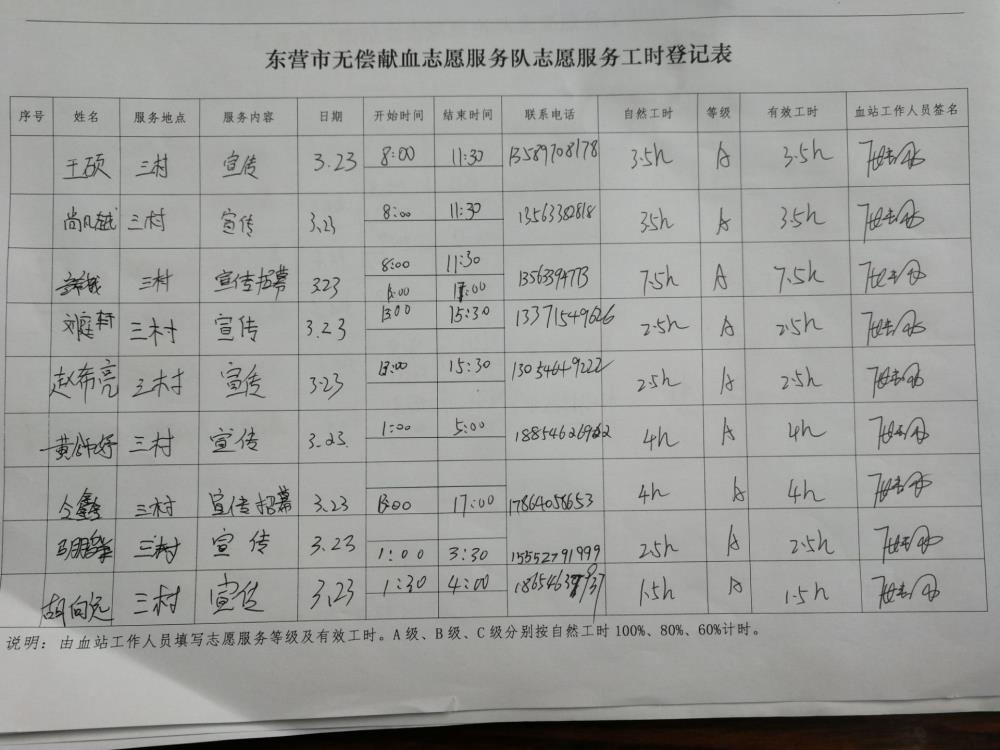 东营市无偿献血志愿服务队志愿服务工时登记表
序号 姓名 服务地点 服务内容 日期 开始时间 结束时间 联系电话 自然工时 等级 有效工时 血站工作人员签名
王硕 三村 宣传 3.23 8:00 11:30 13589708178 3.5h A 3.5h
三村 宣传 3.23 8:00 11:30 3.5h A 3.5h
三村 宣传招募 3.23 8:00 11:30 7.5h A 7.5h
17:00
刘庭轩 三村 宣传 3.23 13:00 15:30 13371549626 2.5h A 2.5h
赵希亮 三村 宣传 3.23 13:00 15:30 13054649222 2.5h A 2.5h
三村 宣传 3.23 1:00 5:00 4h A 4h
三村 宣传招募 3.23 13:00 17:00 17864058653 4h A 4h
三村 宣传 3.23 1:00 3:30 15552791999 2.5h A 2.5h
胡向远 三村 宣传 3.23 1:30 4:00 1.5h A 1.5h
说明：由血站工作人员填写志愿服务等级及有效工时。A级、B级、C级分别按自然工时100%、80%、60%计时。